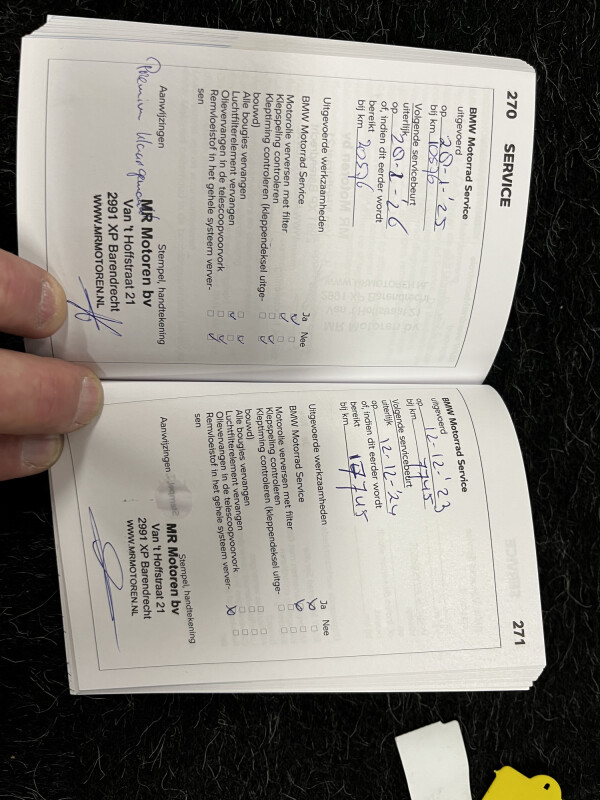 270 SERVICE
BMW Motorrad Service
uitgevoerd
op 20-1-'25
bij km 10596
Volgende servicebeurt
uiterlijk
op 20-1-'26
of, indien dit eerder wordt
bereikt
bij km 20596
Uitgevoerde werkzaamheden
Ja Nee
BMW Motorrad Service
Motorolie verversen met filter
Klepspeling controleren
Kleptiming controleren (kleppendeksel uitge-
bouwd)
Alle bougies vervangen
Luchtfilterelement vervangen
Olievervangen in de telescoopvoorvork
Remvloeistof in het gehele systeem verver-
sen
Aanwijzingen
Premium
Stempel, handtekening
MR Motoren bv
Van 't Hoffstraat 21
2991 XP Barendrecht
WWW.MRMOTOREN.NL
271
BMW Motorrad Service
uitgevoerd
op 12-12-'23
bij km 7745
Volgende servicebeurt
uiterlijk
op 12-12-'24
of, indien dit eerder wordt
bereikt
bij km 17745
Uitgevoerde werkzaamheden
Ja Nee
BMW Motorrad Service
Motorolie verversen met filter
Klepspeling controleren
Kleptiming controleren (kleppendeksel uitge-
bouwd)
Alle bougies vervangen
Luchtfilterelement vervangen
Olievervangen in de telescoopvoorvork
Remvloeistof in het gehele systeem verver-
sen
Aanwijzingen
Stempel, handtekening
MR Motoren bv
Van 't Hoffstraat 21
2991 XP Barendrecht
WWW.MRMOTOREN.NL